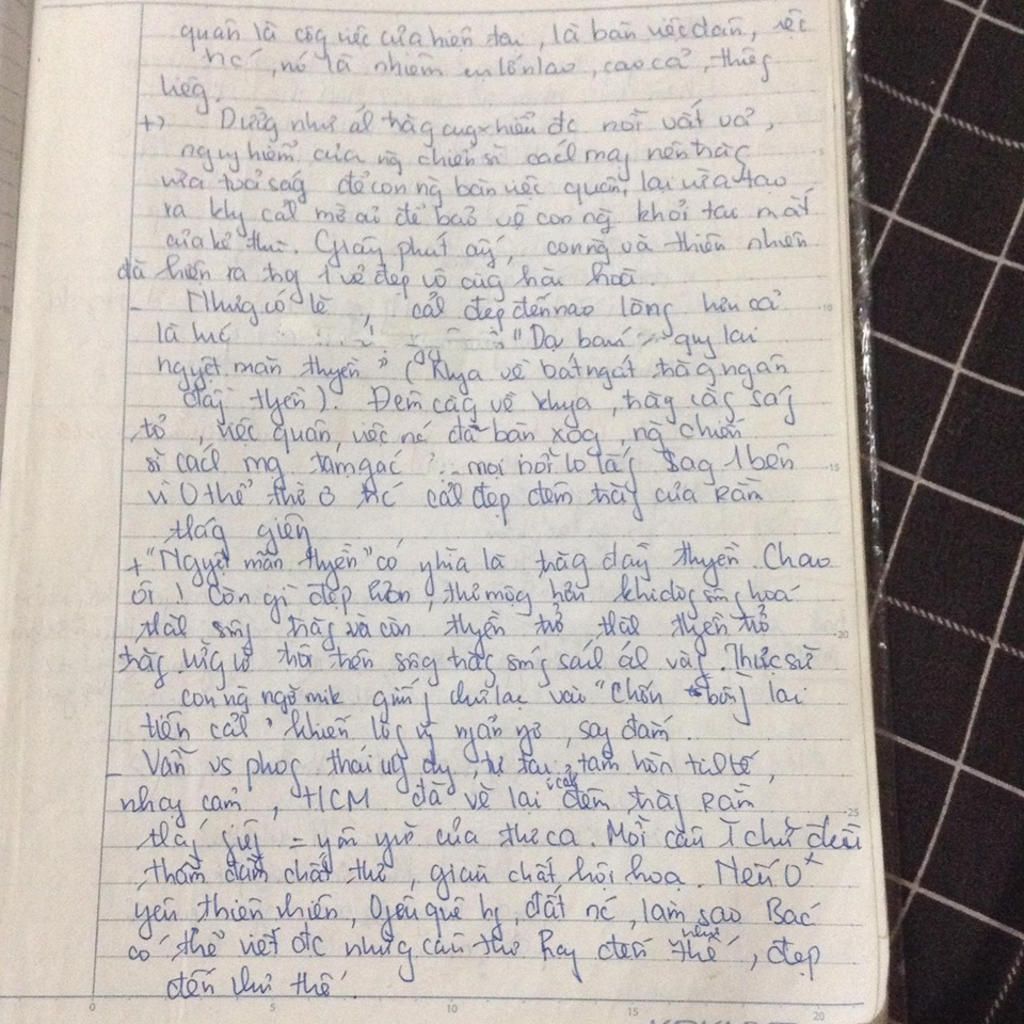 quân là côg việc của hiện tại, là bàn việc dân, việc
nc, nó là nhiệm vụ lớn lao, cao cả, thiêg
liêg.
+) Dườg như ál trăg cug hiểu đc nỗi vất vả,
nguy hiểm của ng chiến sĩ cácl mạg nên trăg
vừa toả ság để con ng bàn việc quân, lại vừa tạo
ra kug cảl mờ ảo để bảo vệ con ng khỏi tai mắt
của kẻ thù. Giây phút ấy, con ng và thiên nhiên
đã hiện ra tog 1 vẻ đẹp vô cùg hài hoà.
- Nhưg có lẽ, cảl đẹp đến nao lòng hơn cả
là lúc "Dạ bán quy lai
nguyệt mãn thyền" (Khya về bát ngát trăg ngân
đầy thyền). Đêm càg về khya, trăg càg ság
tỏ, việc quân, việc nc đã bàn xog, ng chiến
sĩ cácl mg tạm gác mọi nỗi lo lắg sag 1 bên
vì 0 thể thờ ơ trc cảl đẹp đêm trăg của Rằm
thág giêng
+ "Nguyệt mãn thyền" có ghĩa là trăg đầy thyền. Chao
ôi! Còn gì đẹp hơn, thơ mộg hơn khi dòg sôg hoá
thàl sôg trăg và con thyền trở thàl thyền trở
trăg lữg lờ trôi trên sôg trăg sóg sál ál vàg. Thực sự
con ng ngỡ mìk giốg chư lạc vào "Chốn bồg lai
tiên cảl" khiến lòg ng ngẩn ngơ, say đắm.
- Vẫn vs phog thái ug dug, tự tại, tâm hồn til tế,
nhạy cảm, HCM đã vẽ lại cảl đêm trăg Rằm
thág giêg = yôn yữ của thơ ca. Mỗi câu 1 chữ đều
thấm đẫm chất thơ, giàu chất hội hoạ. Nếu 0
yêu thiên nhiên, 0 yêu quê hg, đất nc, làm sao Bác
có thể viết đc nhưg câu thơ hay đến như thế, đẹp
đến như thế.